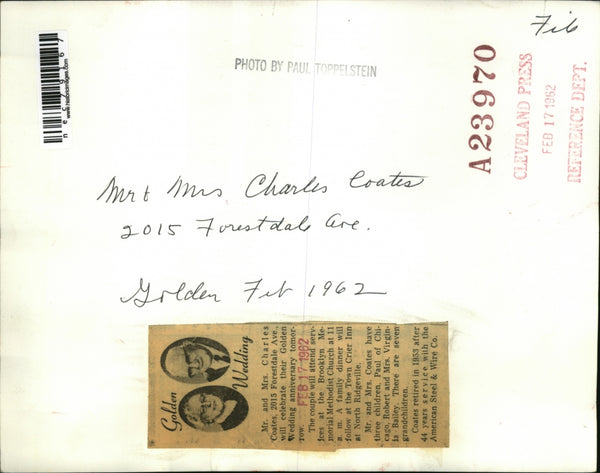 Fib
PHOTO BY PAUL TOPPELSTEIN
A23970
CLEVELAND PRESS
FEB 17 1962
REFERENCE DEPT.
www.historicimages.com
Mr & Mrs Charles Coates
2015 Forestdale Ave.
Golden Feb 1962
Golden Wedding
Mr. and Mrs. Charles
Coates, 2015 Forestdale Ave.,
will celebrate their Golden
Wedding anniversary tomor-
row.
FEB 17 1962
The couple will attend serv-
ices at the Brooklyn Me-
morial Methodist Church at 11
a. m. A family dinner will
follow at the Town Crier Inn
at North Ridgeville.
Mr. and Mrs. Coates have
three children, Paul of Chi-
cago, Robert and Mrs. Virgin-
ia Bailey. There are seven
grandchildren.
Coates retired in 1953 after
44 years service with the
American Steel & Wire Co.